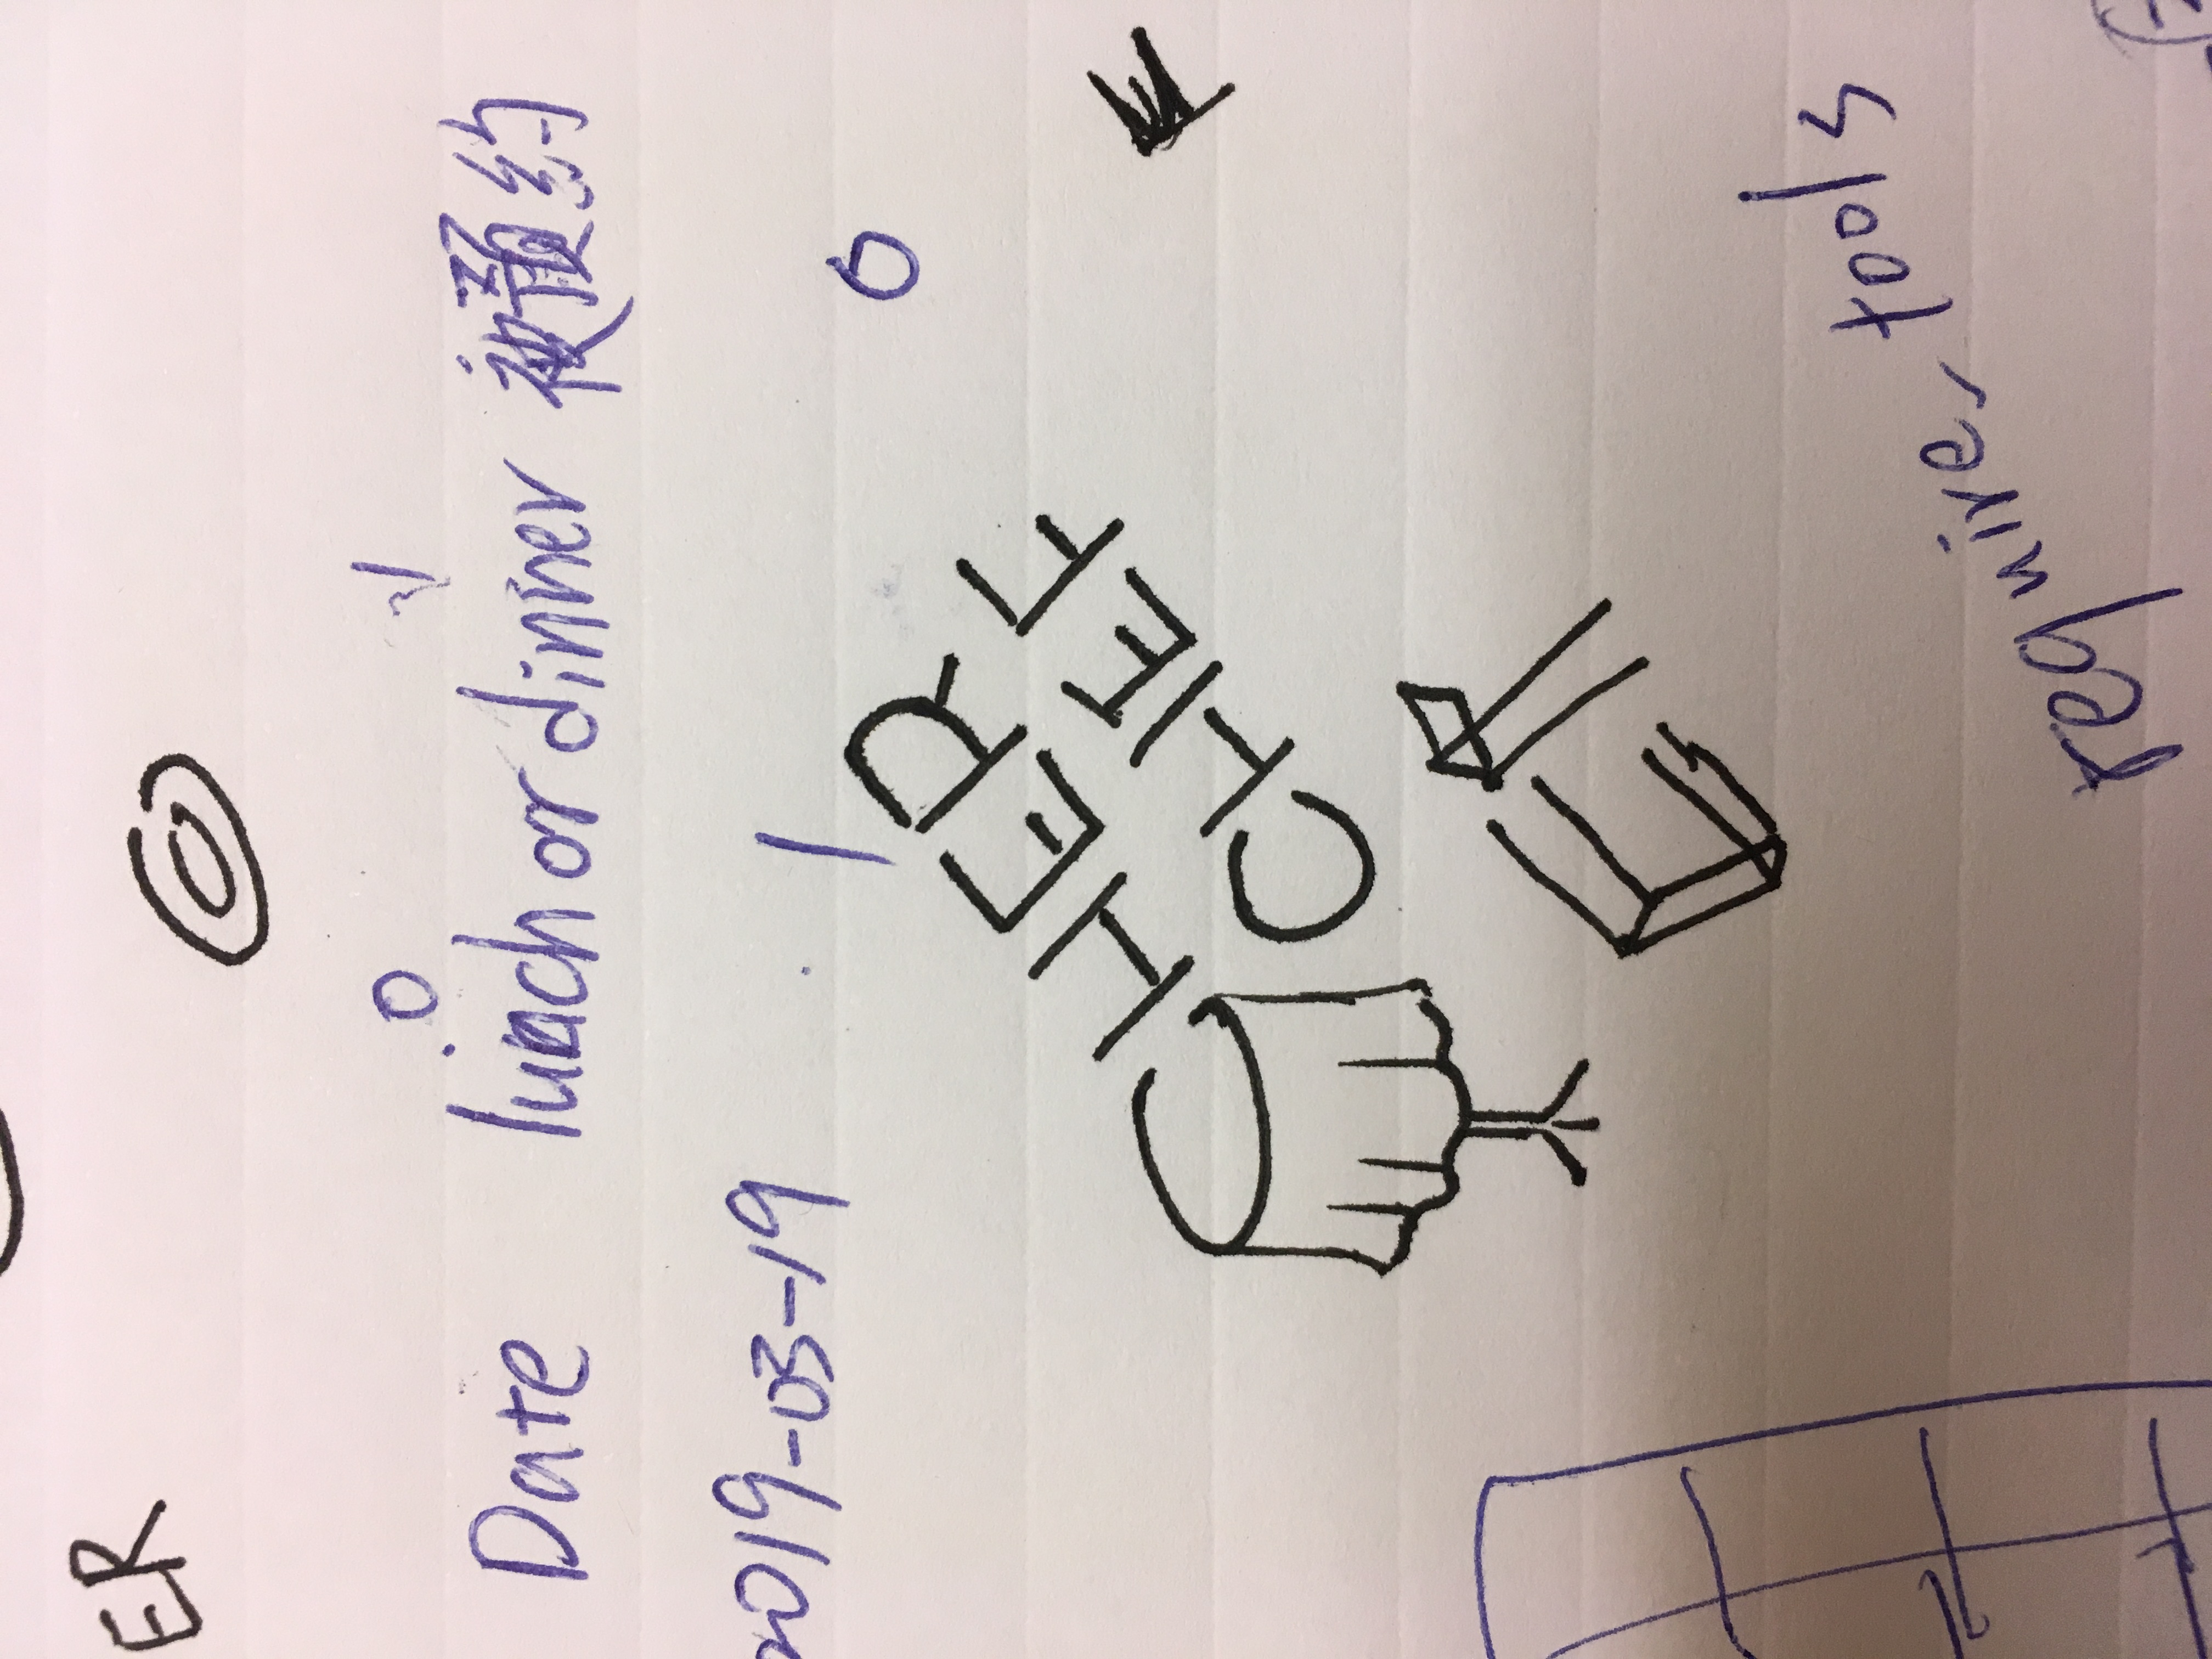 ER
0 1
Date lunch or dinner 被预约
2019-03-19 1 0
CHER
CHEF
require_tools